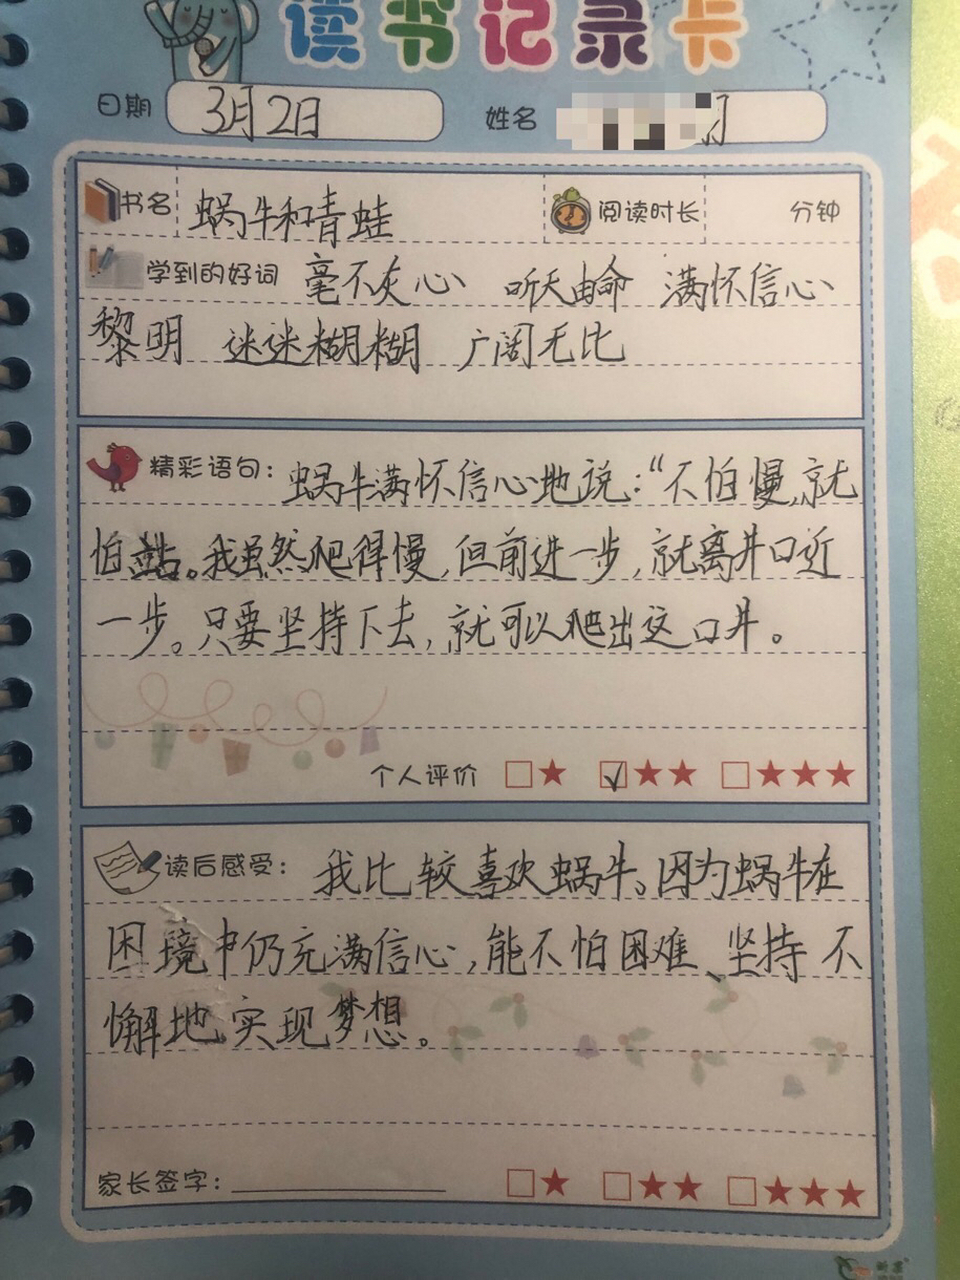 读书记录卡
日期 3月2日 姓名
书名 蜗牛和青蛙 阅读时长 分钟
学到的好词 毫不灰心 听天由命 满怀信心
黎明 迷迷糊糊 广阔无比
精彩语句：蜗牛满怀信心地说：“不怕慢，就
怕站。我虽然爬得慢，但前进一步，就离井口近
一步。只要坚持下去，就可以爬出这口井。
个人评价 □★ ☑★★ □★★★
读后感受：我比较喜欢蜗牛、因为蜗牛在
困境中仍充满信心，能不怕困难、坚持不
懈地实现梦想。
家长签字： □★ □★★ □★★★